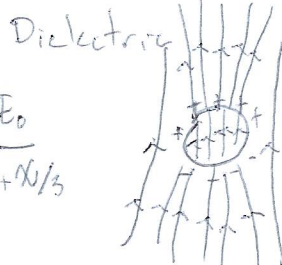 Dielectric
E₀
+χ/3